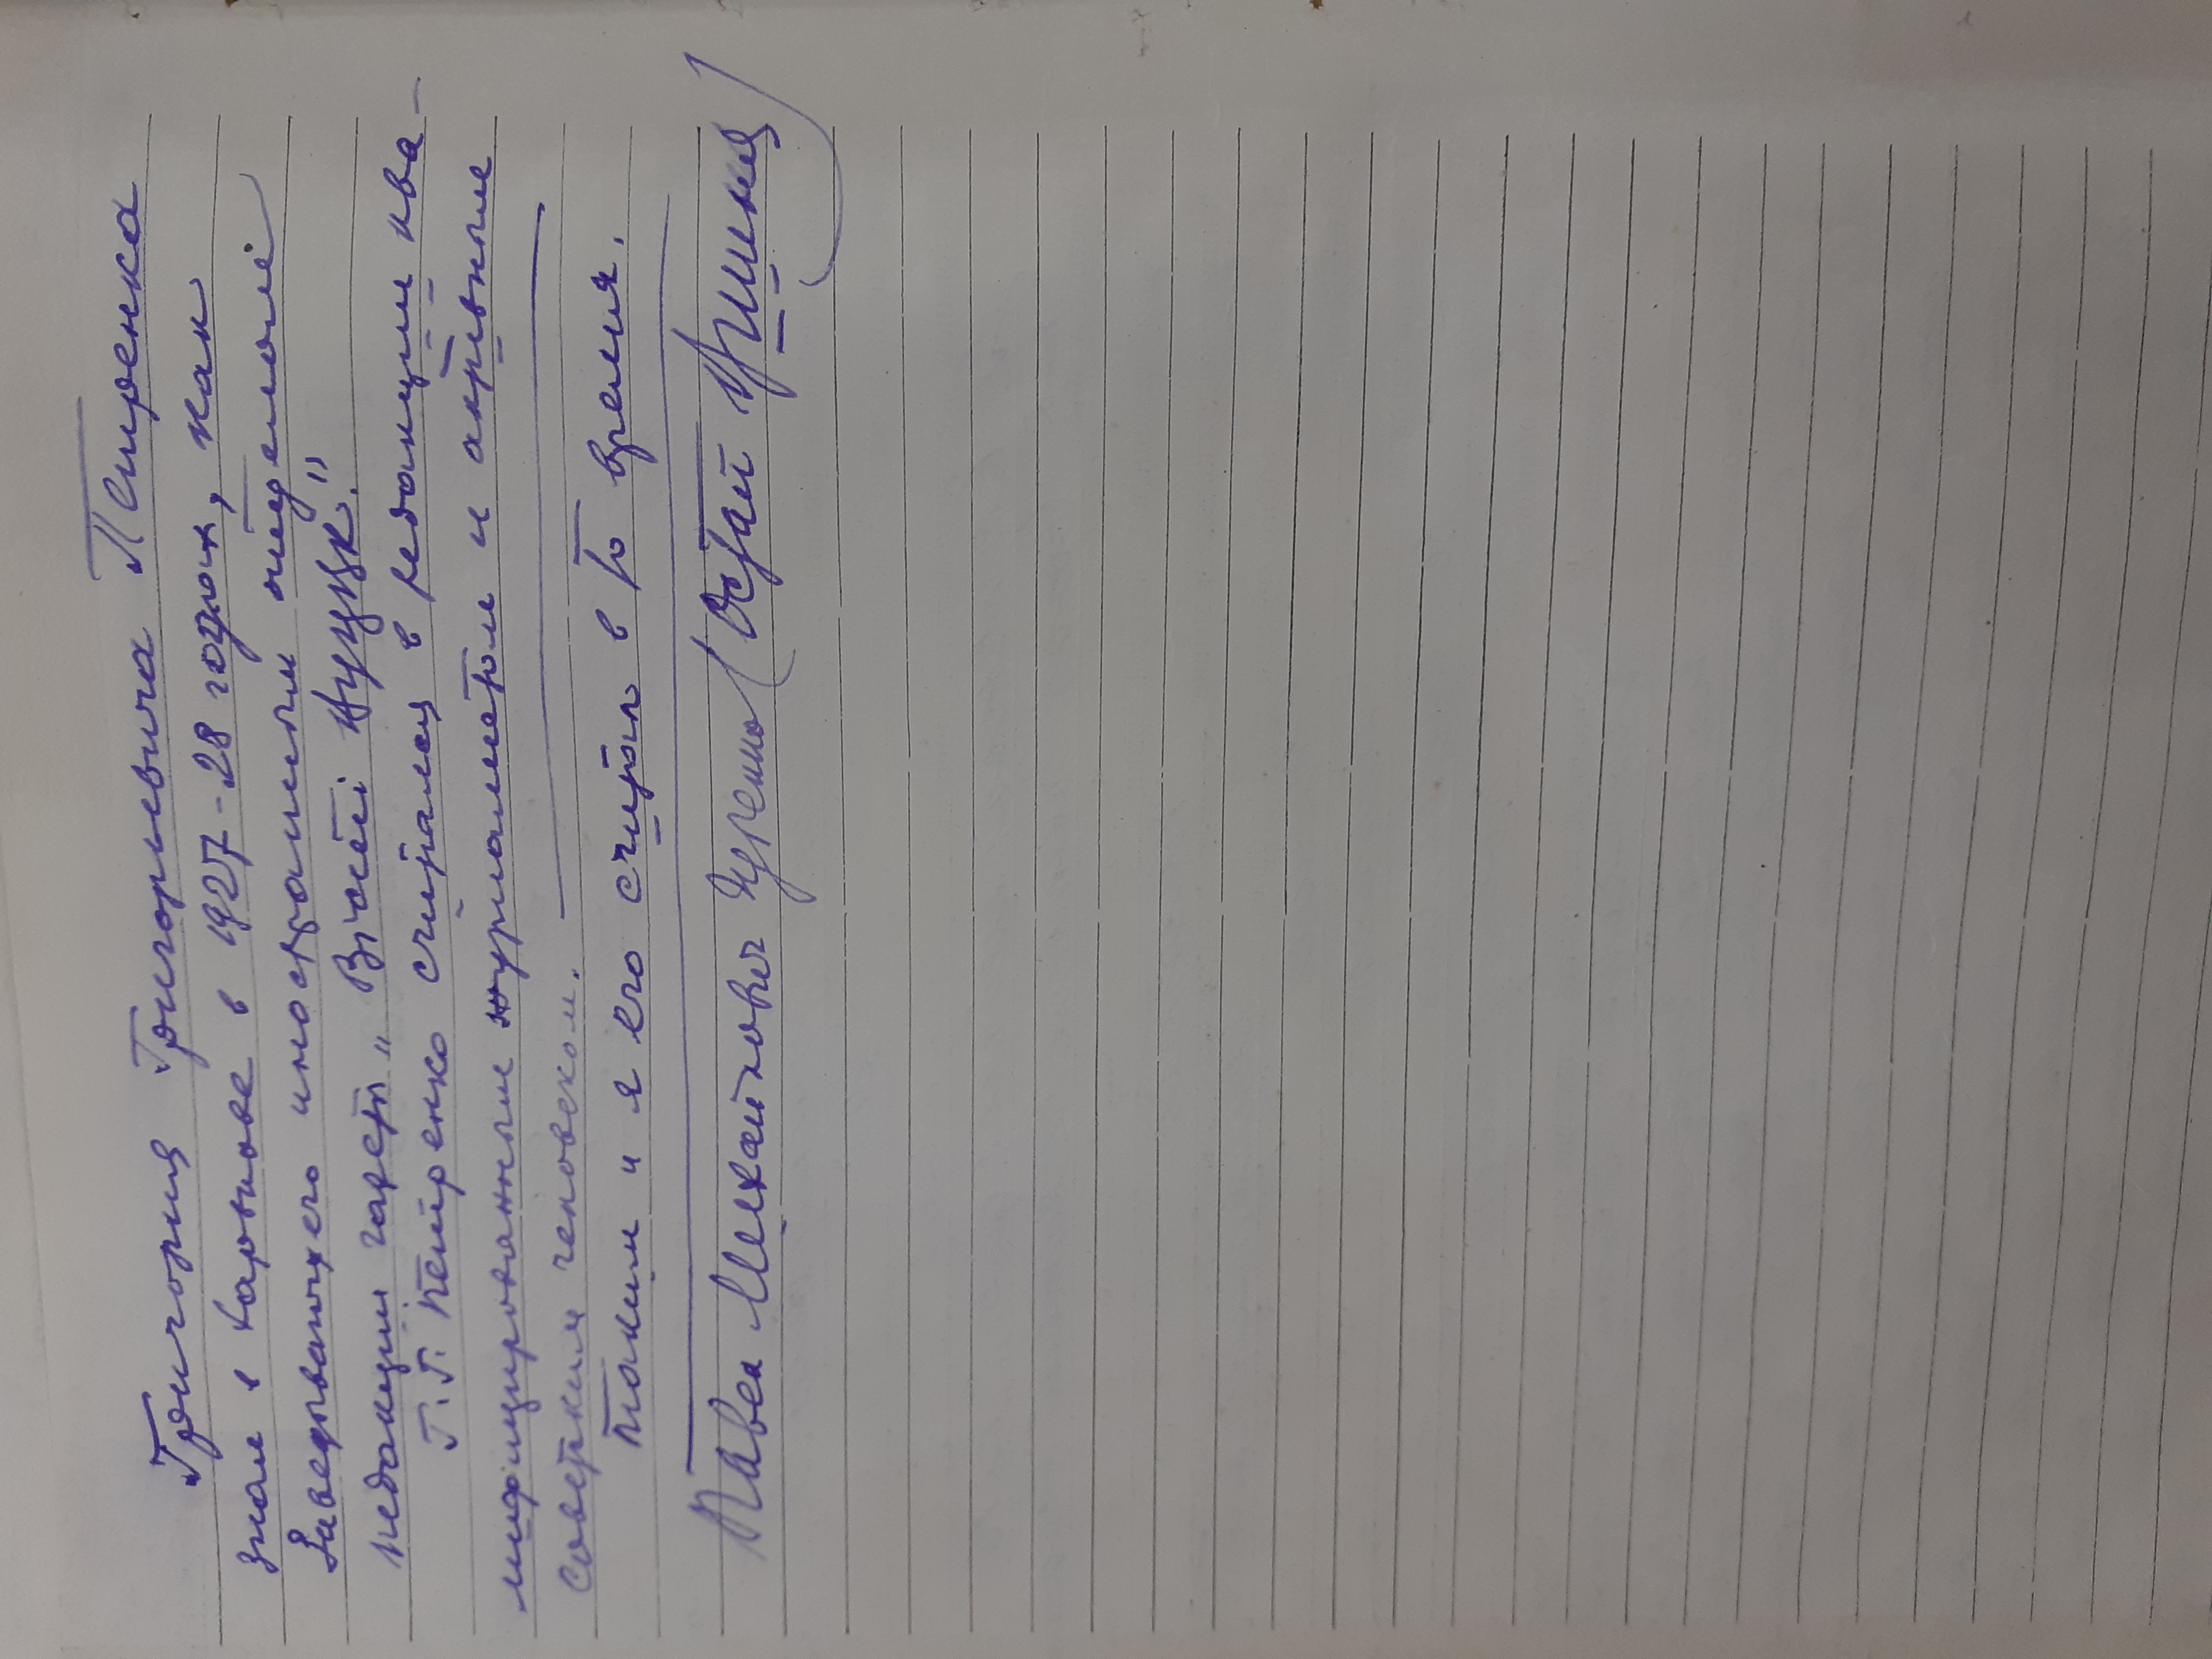 Григория Григорьевича Петренка
знал в Харькове в 1927-28 годах, как
Заведывающего иностранным отделом
редакции газеты „Вiстi ВУЦВК."
Г. Г. Петренко считался в редакции ква-
лифицированным журналистом и активным
советким человеком.
Таким и я его считал в то время.
Павел Михайлович Губенко (Остап Вишня)